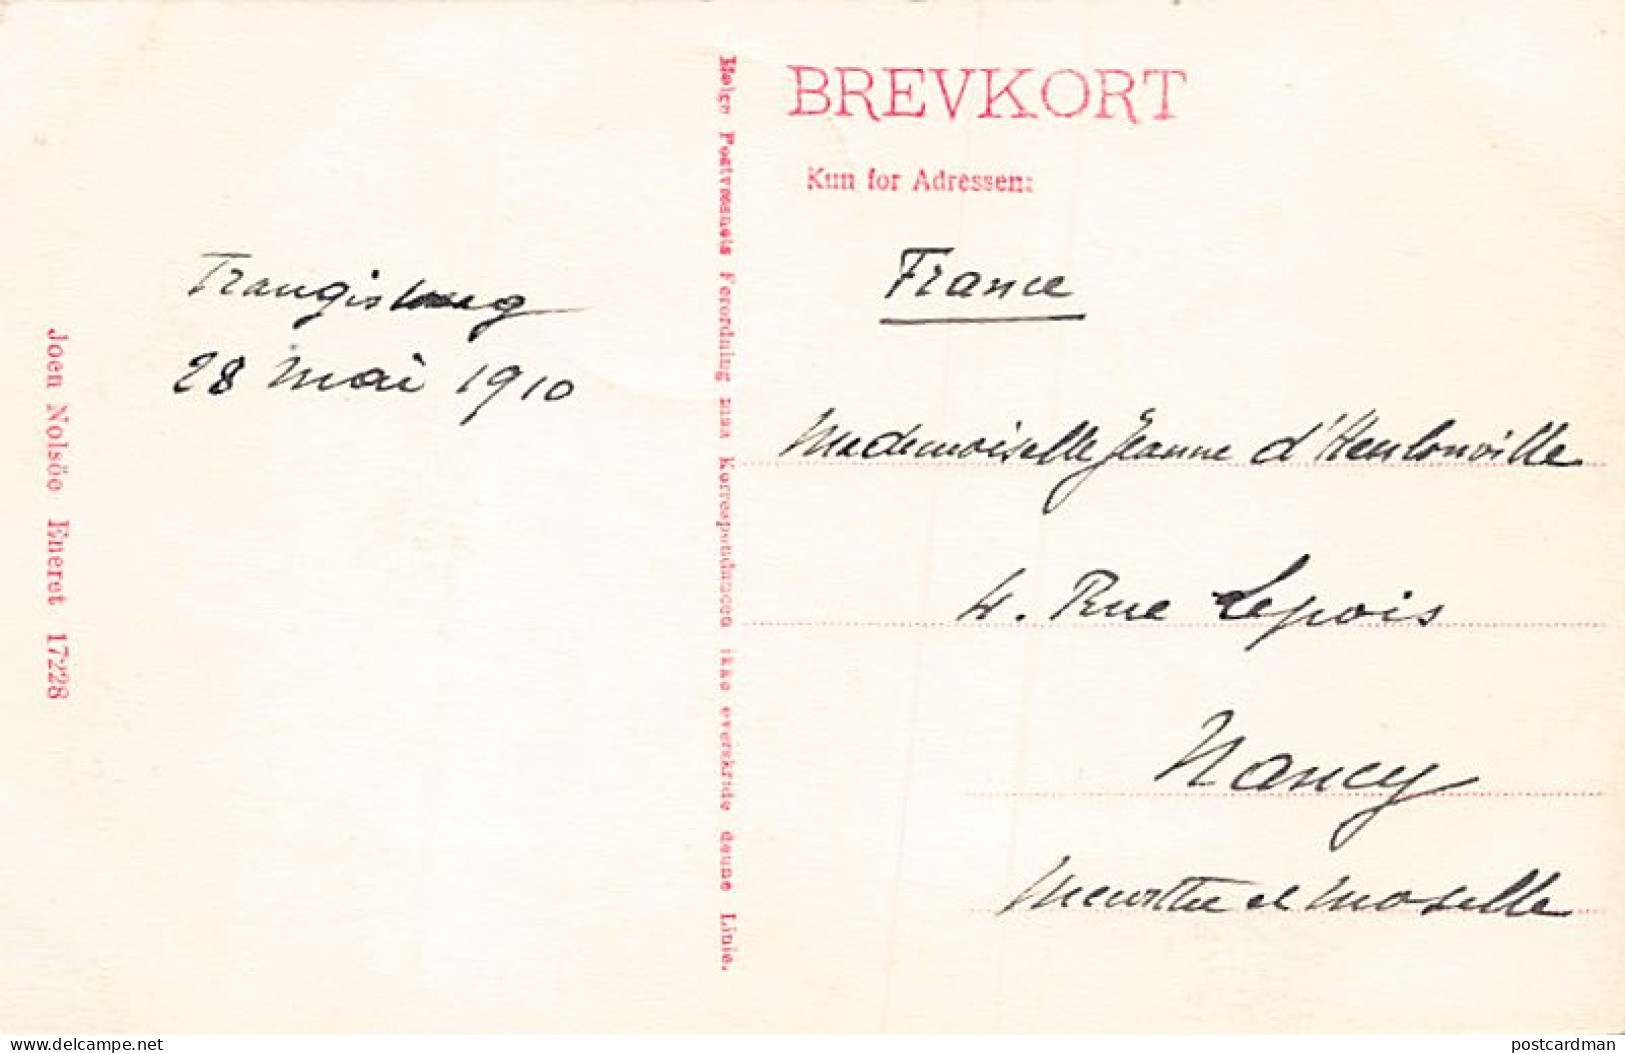 BREVKORT
Kun for Adressen:
Ifølge Postvæsnets Forordning maa Korrespondancen ikke overskride denne Linie.
Joen Nolsöe Eneret 17228
28 Mai 1910
France
Mademoiselle Jeanne d'Heulonville
4. Rue Lepois
Nancy
Meurthe et Moselle
www.delcampe.net
postcardman